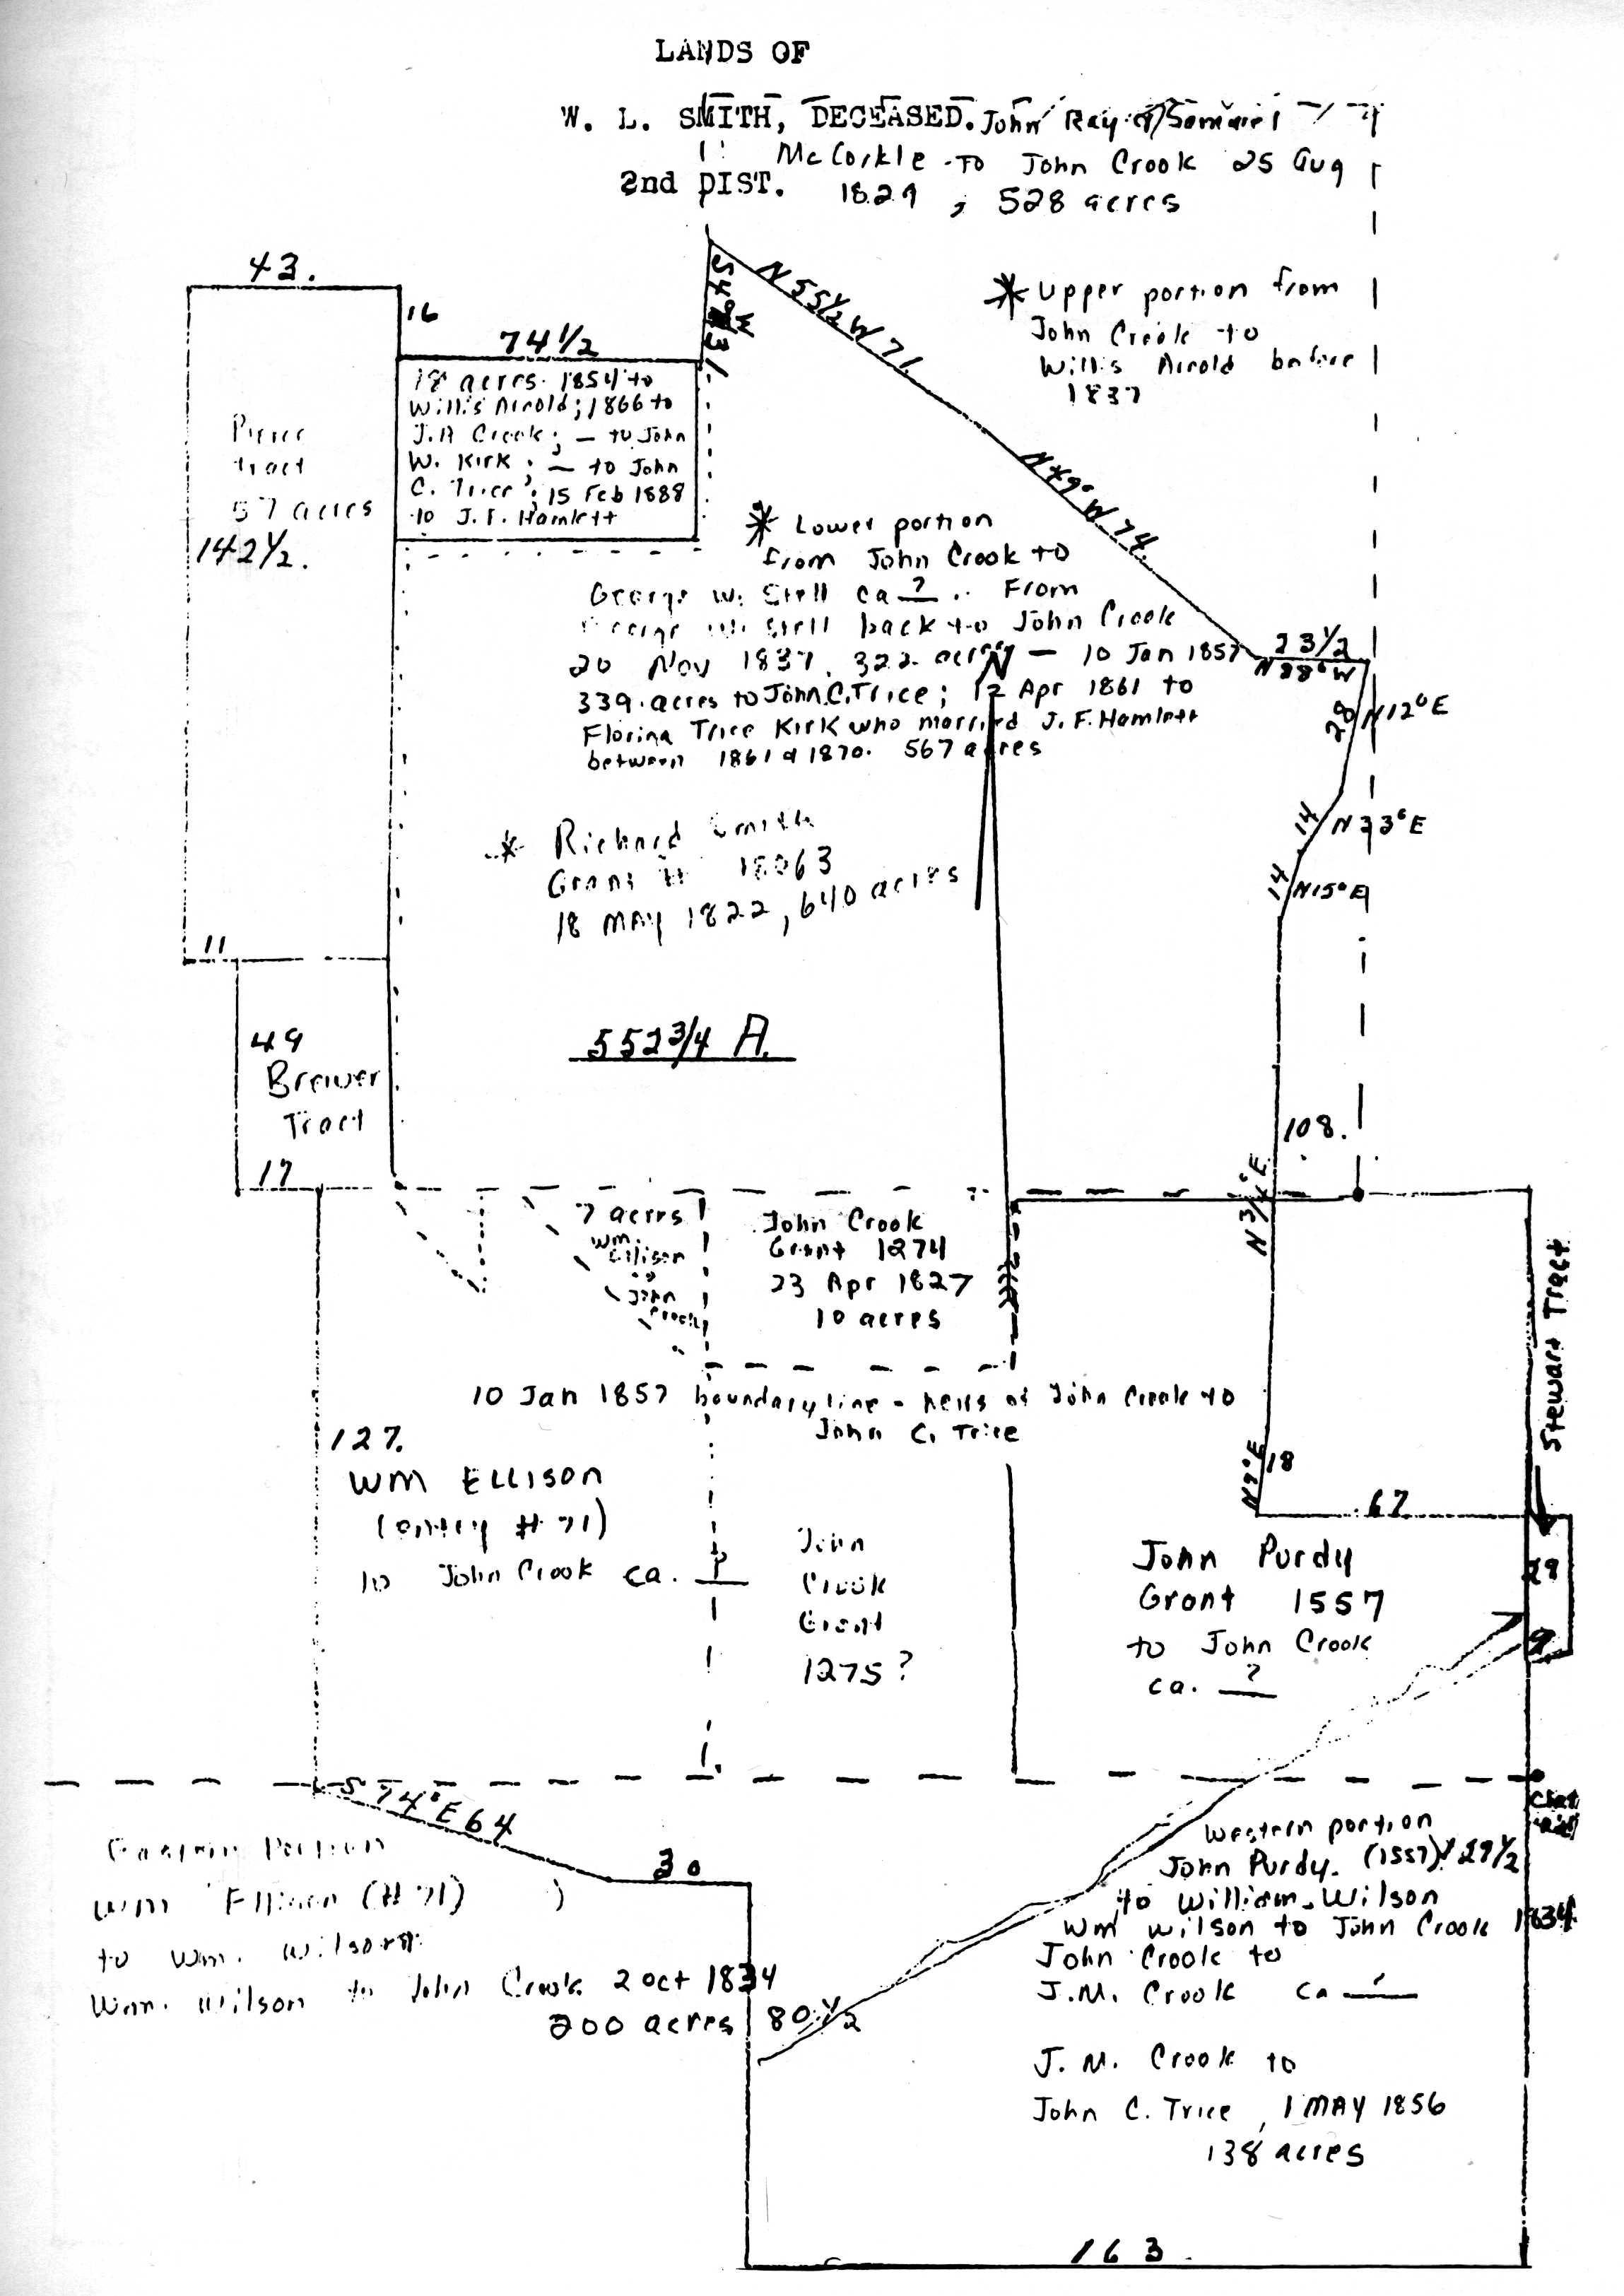 LANDS OF
W. L. SMITH, DECEASED. John Ray
McCorkle to John Crook 25 Aug
2nd DIST. 1829, 528 acres
43.
16
74 1/2
N 55 1/2 W 71.
* Upper portion from
John Crook to
Willis Arnold before
1837
18 acres. 1854 to
Willis Arnold; 1866 to
J.A Crook; — to John
W. Kirk; — to John
C. Trice; 15 Feb 1888
to J. F. Hamlett
Pierce
tract
57 acres
142 1/2.
N 49° W 74.
* Lower portion
from John Crook to
George W. Stell ca ? .. From
George W. Stell back to John Crook
20 Nov 1837, 322 acres — 10 Jan 1857
339 acres to John C. Trice; 12 Apr 1861 to
Florina Trice Kirk who married J. F. Hamlett
between 1861 & 1870. 567 acres
N
23 1/2
N 88° W
28 N 12° E
14 N 33° E
14 N 15° E
* Richard Smith
Grant # 18063
18 MAY 1822, 640 acres
11
552 3/4 A.
49
Brewer
Tract
17
108.
N 3/4° E.
7 acres
Wm.
Ellison
to
John
Crook
John Crook
Grant 1274
23 Apr 1827
10 acres
Stewart Tract
10 Jan 1857 boundary line - heirs of John Crook to
John C. Trice
127.
WM ELLISON
(entry # 71)
to John Crook ca. ?
John
Crook
Grant
1275?
N 2° E 18
67
29
9
John Purdy
Grant 1557
to John Crook
ca. ?
S 74° E 64
30
Eastern Portion
Wm Ellison (# 71)
to Wm. Wilson
Wm. Wilson to John Crook 2 Oct 1834
200 acres
80 1/2
Western portion
John Purdy. (1557) 129 1/2
to William Wilson
Wm Wilson to John Crook 1834
John Crook to
J.M. Crook ca ?
J. M. Crook to
John C. Trice, 1 MAY 1856
138 acres
163